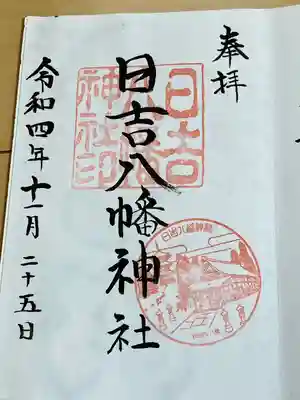 奉拝
日吉八幡神社
日吉八幡神社印
日吉八幡神社
令和四年十一月二十五日